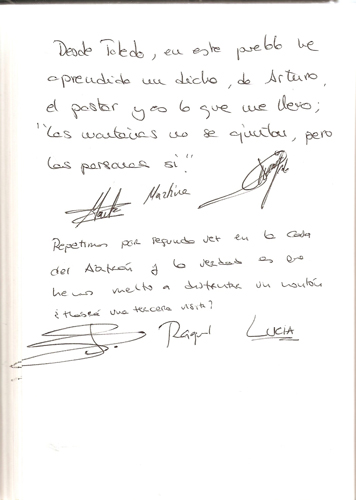 Desde Toledo, en este pueblo he
aprendido un dicho, de Arturo,
el pastor y es lo que me llevo;
"Las montañas no se juntan, pero
las personas si."
Marta Martina
Repetimos por segunda vez en la Casa
del Azafrán y la verdad es que
hemos vuelto a disfrutar un montón
¿Habrá una tercera visita?
Raquel LUCIA